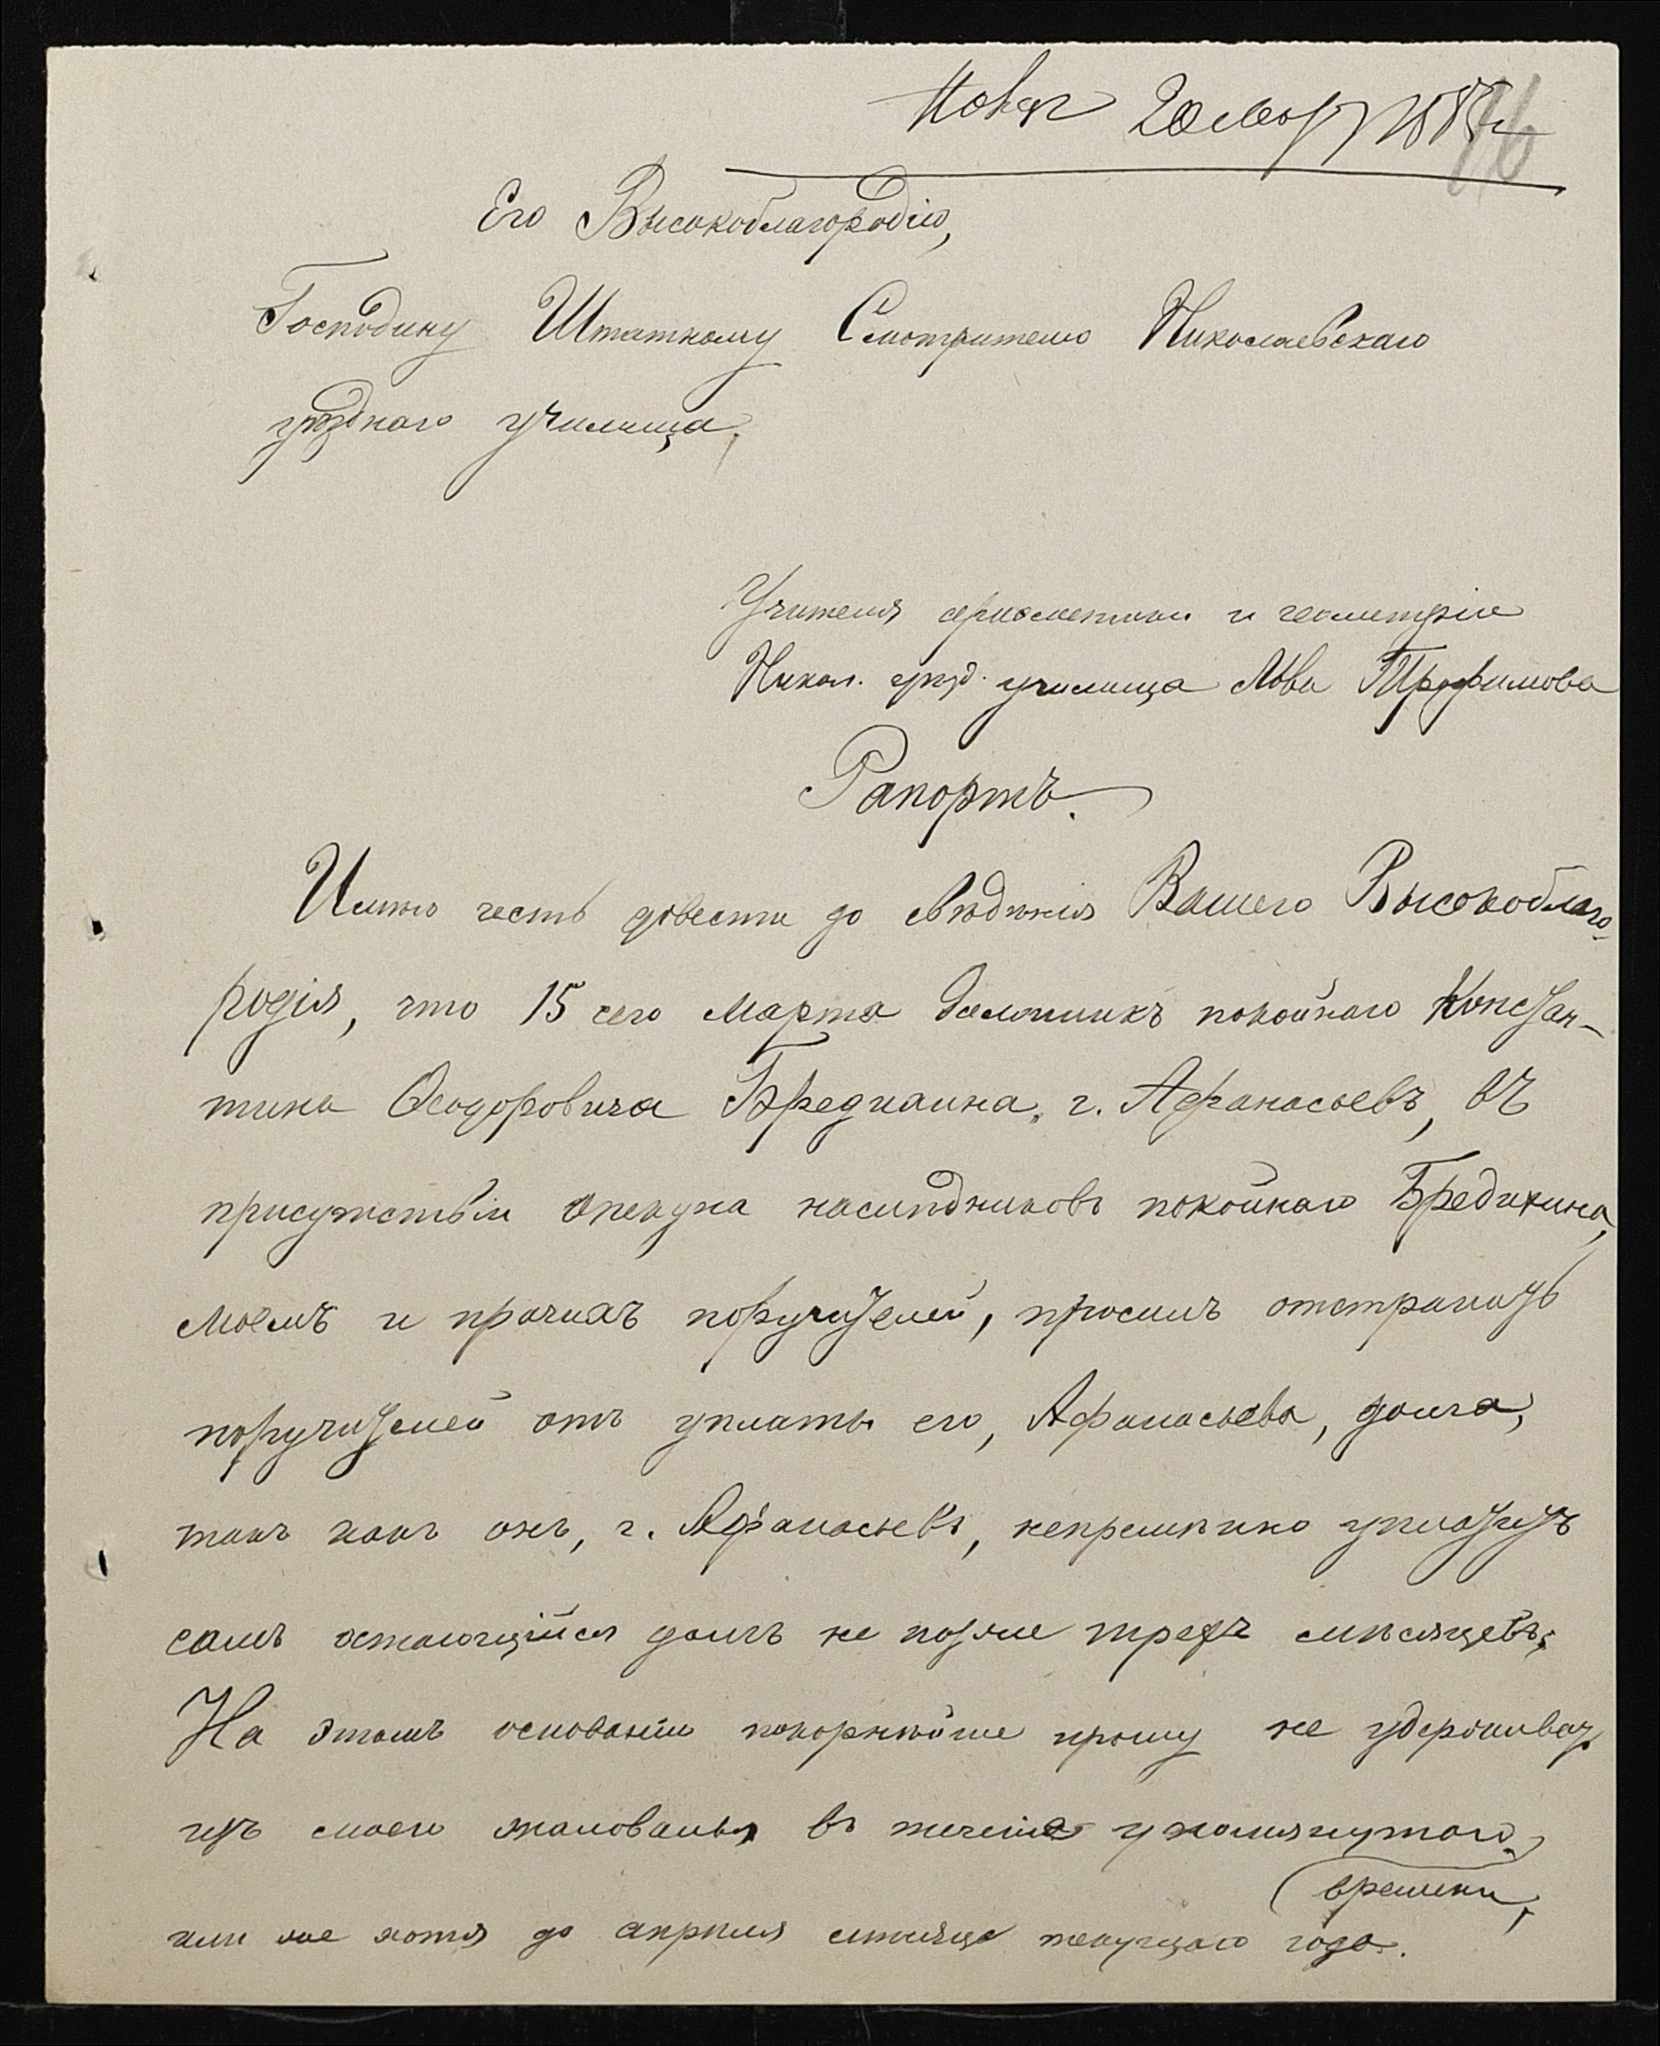 20 Мар
76
Его Высокоблагородію,
Господину Штатному Смотрителю Николаевскаго
уѣзднаго училища.
Учителя ариѳметики и геометріи
Никол. уѣзд. училища Льва Трофимова
Рапортъ.
Имѣю честь довести до свѣдѣнія Вашего Высокоблаго-
родія, что 15 сего Марта должникъ покойнаго Констан-
тина Ѳеодоровича Бредихина, г. Афанасьевъ, въ
присутствіи опекуна наслѣдниковъ покойнаго Бредихина,
моемъ и прочихъ поручителей, просилъ отстранить
поручителей отъ уплаты его, Афанасьева, долга,
такъ какъ онъ, г. Афанасьевъ, непремѣнно уплатитъ
самъ остающійся долгъ не позже трехъ мѣсяцевъ.
На этомъ основаніи покорнѣйше прошу не удерживать
изъ моего жалованья въ теченіе упомянутаго
времени,
или же хотя до апрѣля мѣсяца текущаго года.